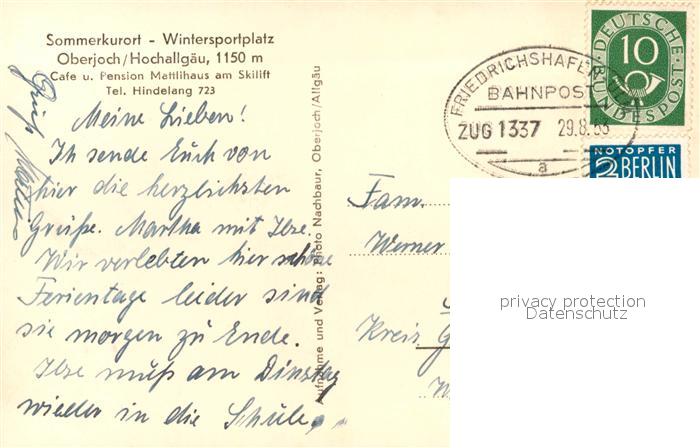 Sommerkurort - Wintersportplatz
Oberjoch/Hochallgäu, 1150 m
Cafe u. Pension Mattlihaus am Skilift
Tel. Hindelang 723
Meine Lieben!
Ich sende Euch von
hier die herzlichsten
Grüße. Martha mit Ilse.
Wir verlebten hier schöne
Ferientage leider sind
sie morgen zu Ende.
Ilse muß am Dinstag
wieder in die Schule.
Gruß
Aufnahme und Verlag: Photo Nachbaur, Oberjoch/Allgäu
FRIEDRICHSHAFEN
BAHNPOST
ZUG 1337 29.8.53
a
DEUTSCHE
BUNDESPOST
10
NOTOPFER
2 BERLIN
Fam.
Werner
Kreis G
privacy protection
Datenschutz